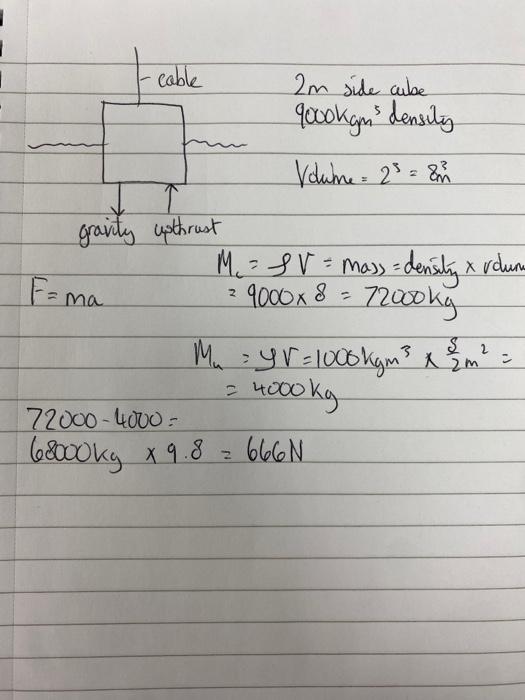 cable
2m side cube
9000kgm³ density
Volume = 2³ = 8m³
gravity upthrust
Mc = ρV = mass = density x volum
= 9000 x 8 = 72000kg
F = ma
Mu = ρV = 1000kgm³ x 8/2m² =
= 4000kg
72000 - 4000 =
68000kg x 9.8 = 666N